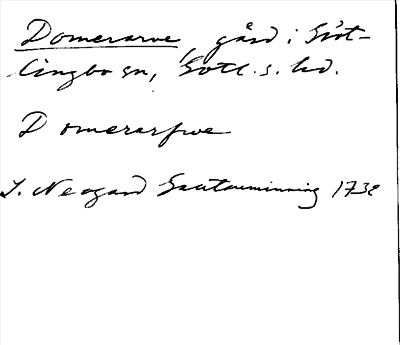 Domerarve, gård i Gröt-
lingbo sn, Gotl. s. hd.
Domerarfwe
J. Neogard Gautauminning 1732